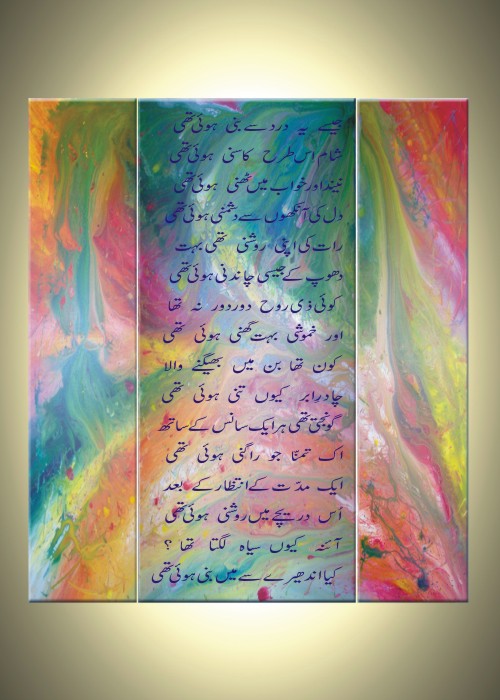 جیسے یہ درد سے بنی ہوئی تھی
شام اس طرح کاسنی ہوئی تھی
نیند اور خواب میں ٹھنی ہوئی تھی
دل کی آنکھوں سے دشمنی ہوئی تھی
رات کی اپنی روشنی تھی بہت
دھوپ کے جیسی چاندنی ہوئی تھی
کوئی ذی روح دور دور نہ تھا
اور خموشی بہت گھنی ہوئی تھی
کون تھا بن میں بھیگنے والا
چادرِ ابر کیوں تنی ہوئی تھی
گونجتی تھی ہر ایک سانس کے ساتھ
اک تمنّا جو راگنی ہوئی تھی
ایک مدّت کے انتظار کے بعد
اُس دریچے میں روشنی ہوئی تھی
آئنہ کیوں سیاہ لگتا تھا ؟
کیا اندھیرے سے میں بنی ہوئی تھی